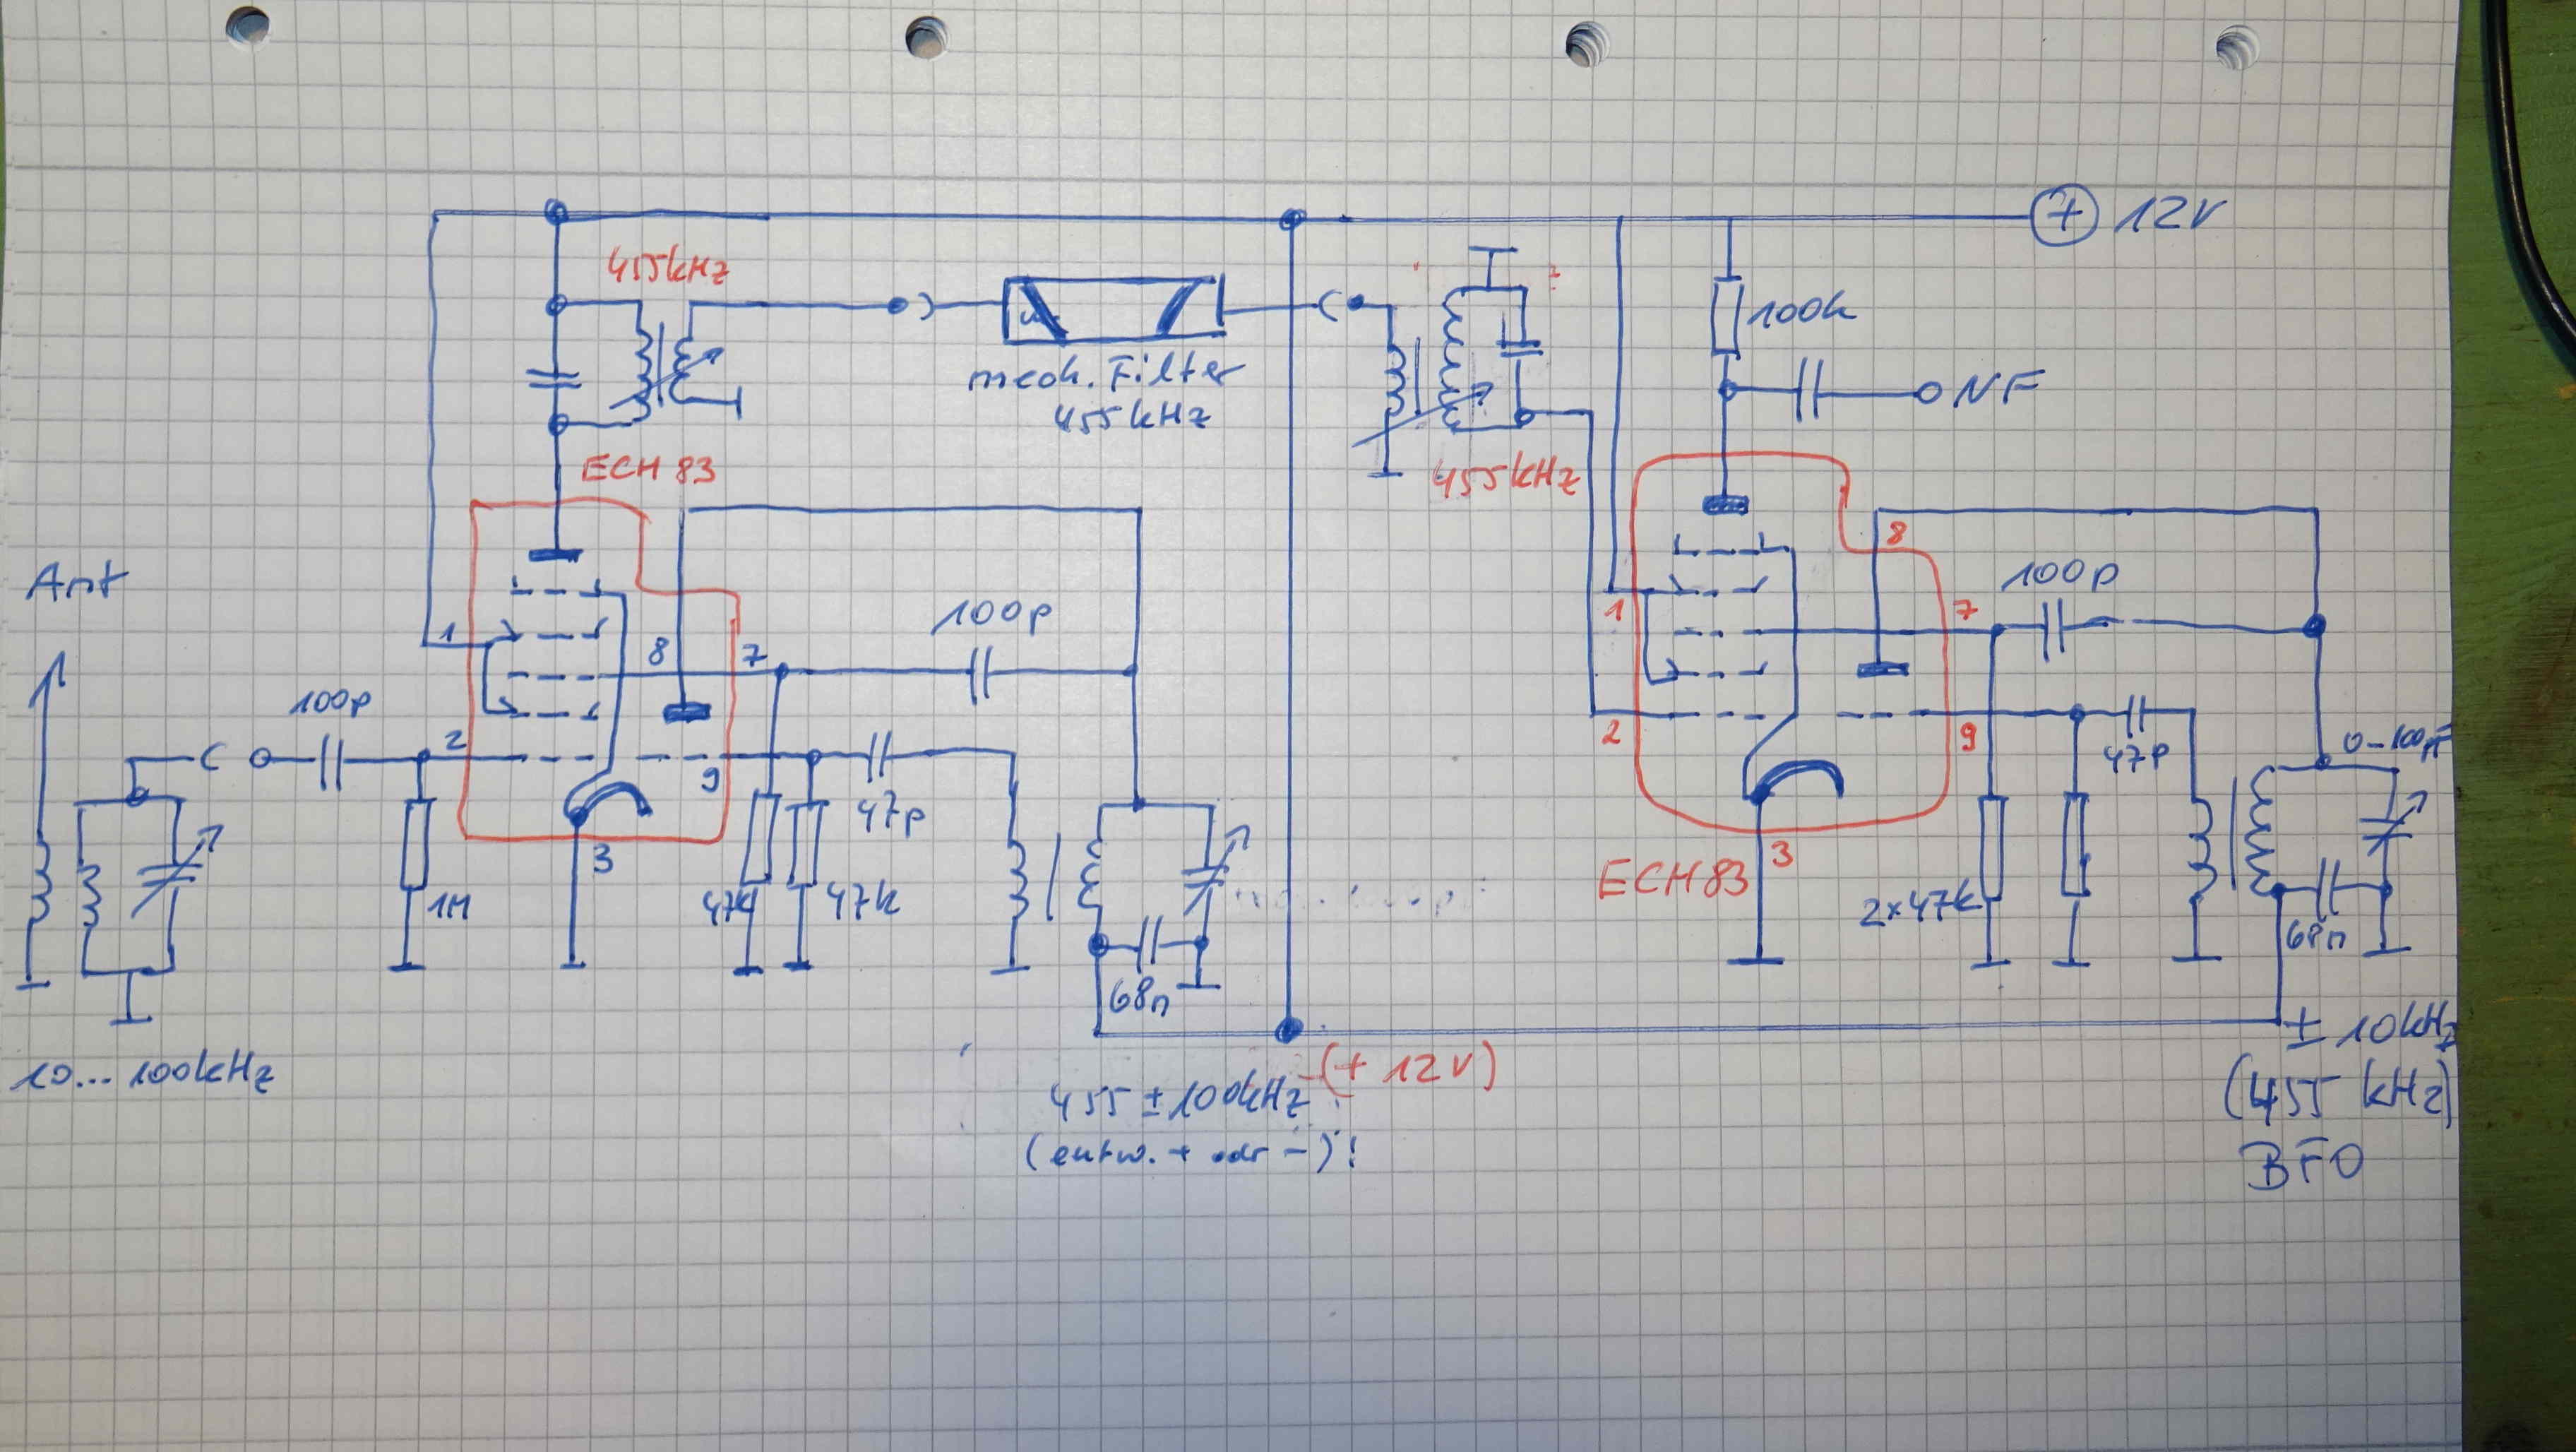 + 12V
455kHz
100k
mech. Filter
455kHz
NF
ECH 83
455kHz
Ant
1
8
7
100p
100p
2
9
47p
3
1M
47k
47k
68n
10... 100kHz
1
8
7
100p
2
9
47p
0-100pF
3
ECH83
2x47k
68n
(+ 12V)
455 ±100kHz
(entw. + odr -)!
± 10kHz
(455 kHz)
BFO